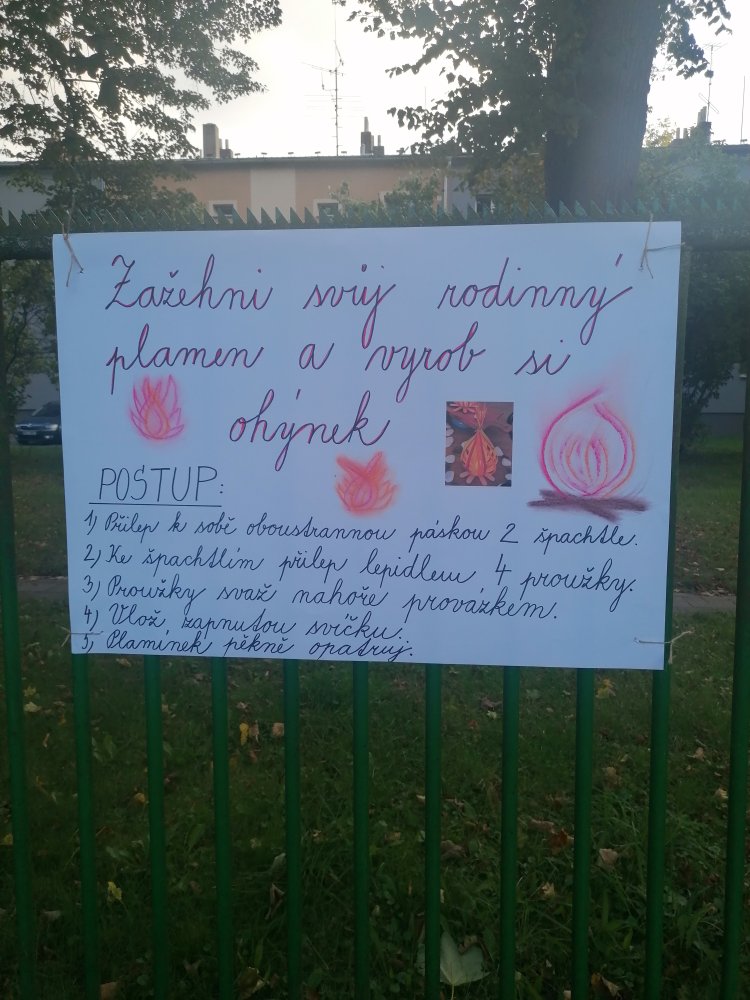 Zažehni svůj rodinný
plamen a vyrob si
ohýnek
POSTUP:
1) Přilep k sobě oboustrannou páskou 2 špachtle.
2) Ke špachtlím přilep lepidlem 4 proužky.
3) Proužky svaž nahoře provázkem.
4) Vlož zapnutou svíčku.
5) Plamínek pěkně opatruj.